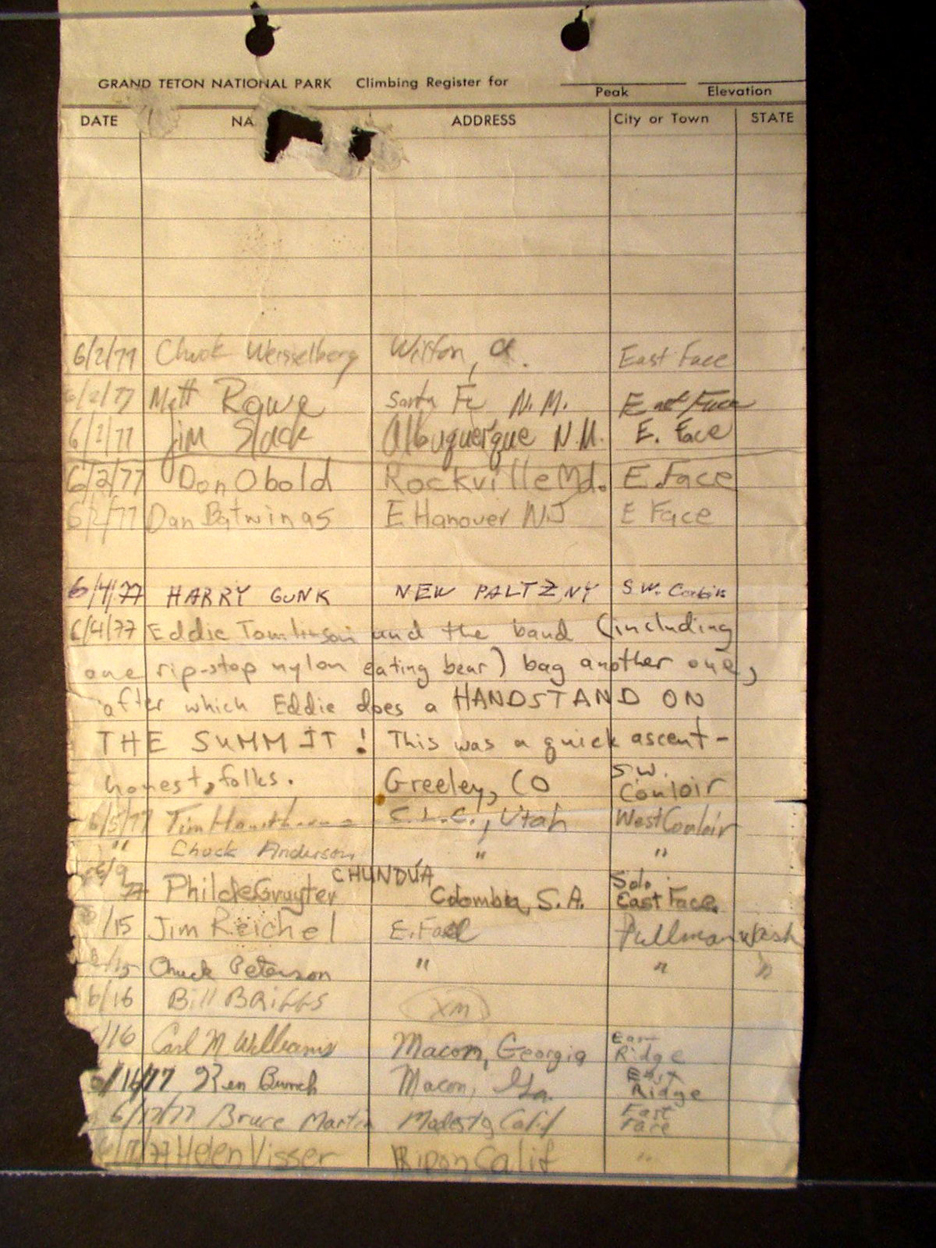 GRAND TETON NATIONAL PARK Climbing Register for
Peak Elevation
DATE NA ADDRESS City or Town STATE
6/2/77 Chuck Weisselberg Wilton, Ct. East Face
6/2/77 Matt Rowe Santa Fe N.M. East Face
6/2/77 Jim Slack Albuquerque N.M. E. Face
6/2/77 Don Obold Rockville Md. E. Face
6/2/77 Dan Batwinas E Hanover NJ E Face
6/4/77 HARRY GUNK NEW PALTZ NY S.W.
6/4/77 Eddie Tomlinson and the band (including
one rip-stop nylon eating bear) bag another one,
after which Eddie does a HANDSTAND ON
THE SUMMIT! This was a quick ascent-
honest, folks. Greeley, CO S.W. Couloir
6/5/77 Tim S.L.C., Utah West Couloir
" Chuck Anderson " "
6/9 77 Phil deGruyter CHUNDUA Colombia, S.A. Solo East Face
/15 Jim Reichel E. Face Pullman Wash
/15 Chuck Peterson " " "
6/16 Bill BRIGGS
/16 Carl M Williams Macon, Georgia East Ridge
/16/77 Ken Bunch Macon, Ga. East Ridge
6/17/77 Bruce Martin Modesto Calif East Face
6/17/77 Helen Visser Ripon Calif "